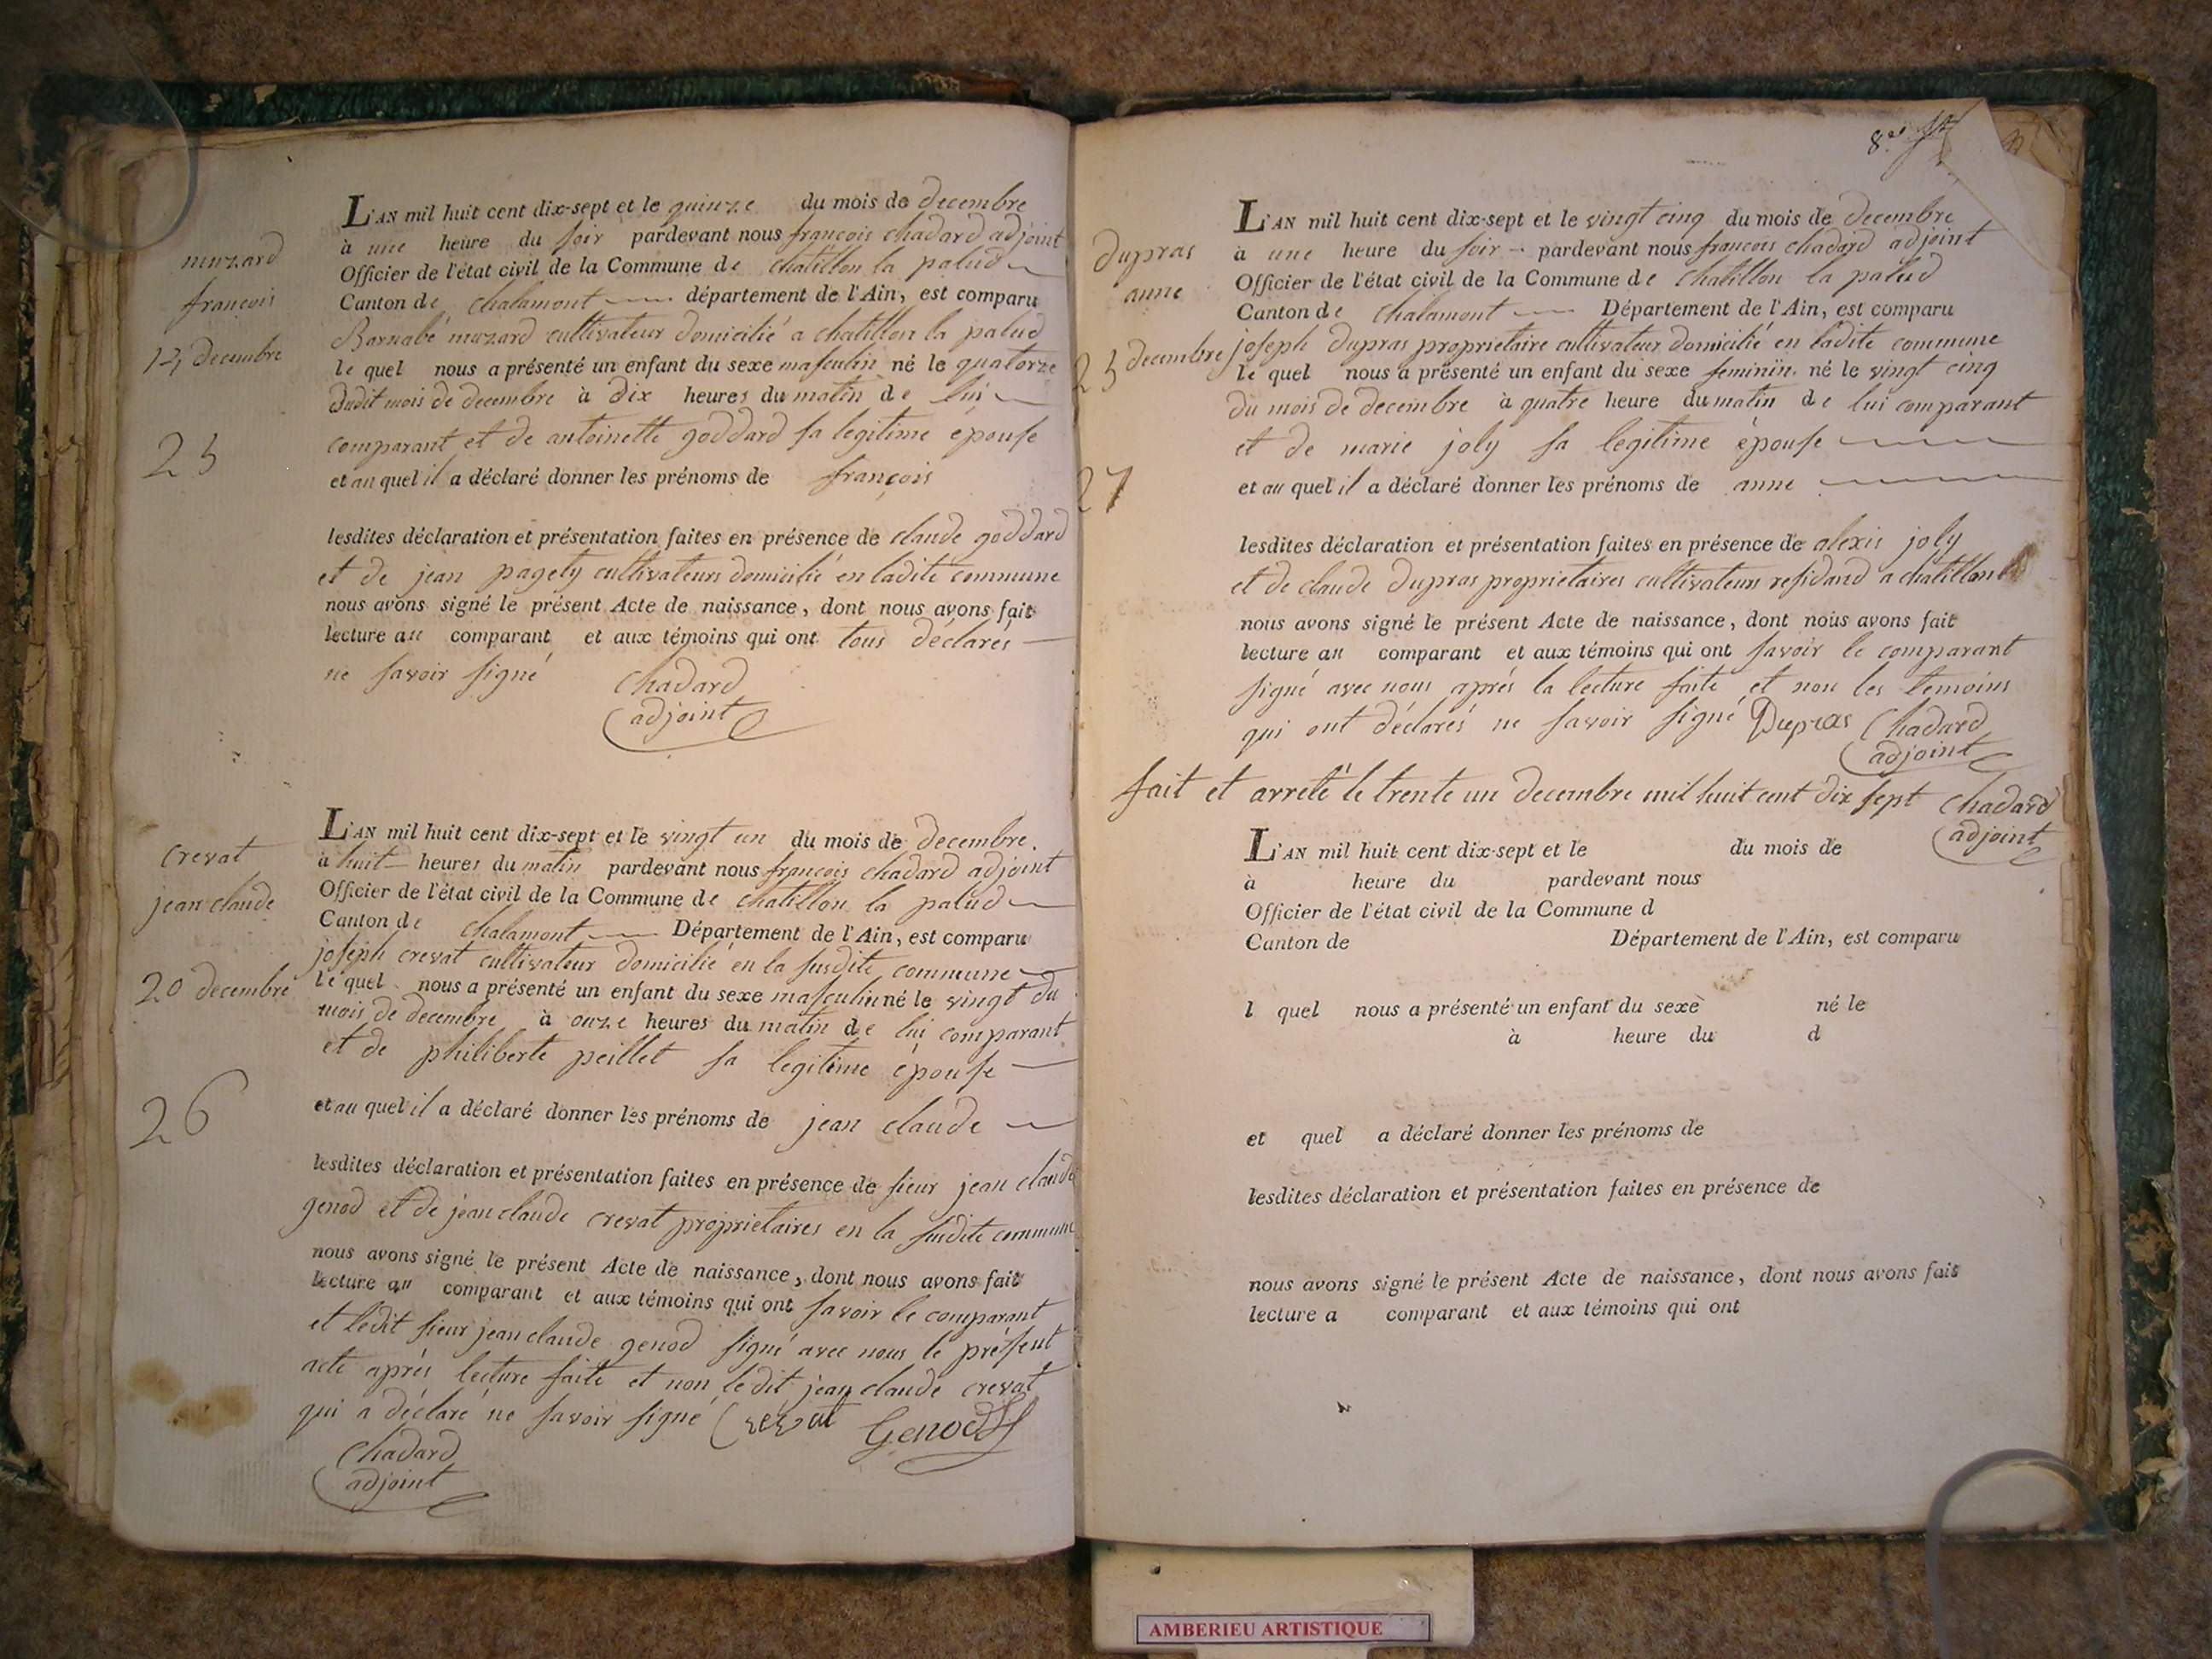 muzard
françois
14 decembre
25
L'AN mil huit cent dix-sept et le quinze du mois de decembre
à une heure du soir pardevant nous françois chadard adjoint
Officier de l'état civil de la Commune de chatillon la palud
Canton de chalamont département de l'Ain, est comparu
Barnabé muzard cultivateur domicilié a chatillon la palud
le quel nous a présenté un enfant du sexe masculin né le quatorze
dudit mois de decembre à dix heures du matin de lui
comparant et de antoinette goddard sa legitime épouse
et au quel il a déclaré donner les prénoms de françois
lesdites déclaration et présentation faites en présence de claude goddard
et de jean pagety cultivateurs domicilié en ladite commune
nous avons signé le présent Acte de naissance, dont nous avons fait
lecture au comparant et aux témoins qui ont tous déclarés
ne savoir signé Chadard
adjoint
crevat
jean claude
20 decembre
26
L'AN mil huit cent dix-sept et le vingt un du mois de decembre.
à huit heures du matin pardevant nous françois chadard adjoint
Officier de l'état civil de la Commune de chatillon la palud
Canton de chalamont Département de l'Ain, est comparu
joseph crevat cultivateur domicilié en la susdite commune
le quel nous a présenté un enfant du sexe masculin né le vingt du
mois de decembre à onze heures du matin de lui comparant
et de philiberte peillet sa legitime épouse
et au quel il a déclaré donner les prénoms de jean claude
lesdites déclaration et présentation faites en présence de sieur jean claude
genod et de jean claude crevat proprietaires en la susdite commune
nous avons signé le présent Acte de naissance, dont nous avons fait
lecture au comparant et aux témoins qui ont savoir le comparant
et ledit sieur jean claude genod signé avec nous le présent
acte après lecture faite et non ledit jean claude crevat
qui a déclaré ne savoir signé Crevat Genod
Chadard
adjoint
dupras
anne
25 decembre
27
L'AN mil huit cent dix-sept et le vingt cinq du mois de decembre
à une heure du soir pardevant nous françois chadard adjoint
Officier de l'état civil de la Commune de chatillon la palud
Canton de chalamont Département de l'Ain, est comparu
joseph dupras proprietaire cultivateur domicilié en ladite commune
le quel nous a présenté un enfant du sexe feminin né le vingt cinq
du mois de decembre à quatre heure du matin de lui comparant
et de marie joly sa legitime épouse
et au quel il a déclaré donner les prénoms de anne
lesdites déclaration et présentation faites en présence de alexis joly
et de claude dupras proprietaires cultivateurs residand a chatillon
nous avons signé le présent Acte de naissance, dont nous avons fait
lecture au comparant et aux témoins qui ont savoir le comparant
signé avec nous après la lecture faite et non les temoins
qui ont déclarés ne savoir signé Dupras Chadard
adjoint
fait et arrêté le trente un decembre mil huit cent dix sept Chadard
adjoint
L'AN mil huit cent dix-sept et le du mois de
à heure du pardevant nous
Officier de l'état civil de la Commune d
Canton de Département de l'Ain, est comparu
l quel nous a présenté un enfant du sexe né le
à heure du d
et quel a déclaré donner les prénoms de
lesdites déclaration et présentation faites en présence de
nous avons signé le présent Acte de naissance, dont nous avons fait
lecture a comparant et aux témoins qui ont
AMBERIEU ARTISTIQUE